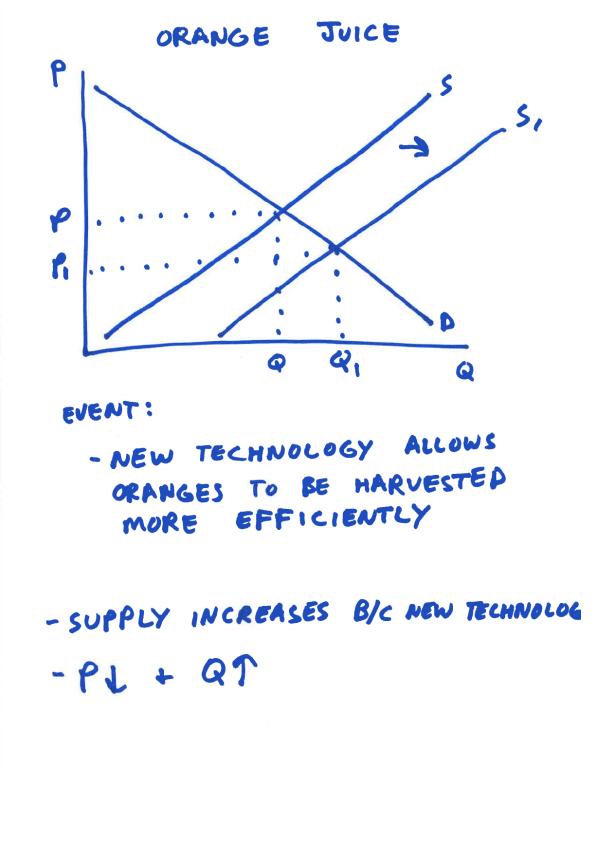 ORANGE JUICE
P
S
S1
P
P1
D
Q
Q1
Q
EVENT:
- NEW TECHNOLOGY ALLOWS
ORANGES TO BE HARVESTED
MORE EFFICIENTLY
- SUPPLY INCREASES B/C NEW TECHNOLOG
- P↓ + Q↑